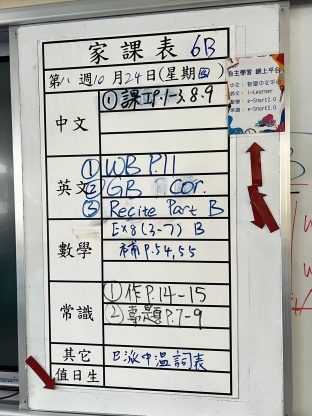 家課表 6B
第八週10月24日(星期四)
中文
①課工P.1-3,8,9
英文
①WB P.11
②GB P. cor.
③Recite Part B
數學
Ex8(3-7) B
補P.54,55
常識
①作P.14-15
②專題P.7-9
其它
B派中溫詞表
值日生
自主學習 網上平台